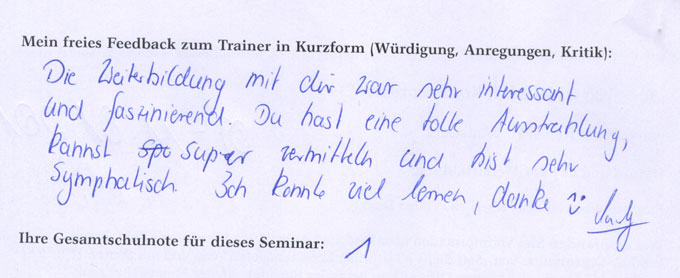 Mein freies Feedback zum Trainer in Kurzform (Würdigung, Anregungen, Kritik):
Die Weiterbildung mit dir war sehr interessant
und faszinierend. Du hast eine tolle Ausstrahlung,
kannst super vermitteln und bist sehr
Symphatisch. Ich konnte viel lernen, danke
Ihre Gesamtschulnote für dieses Seminar: 1